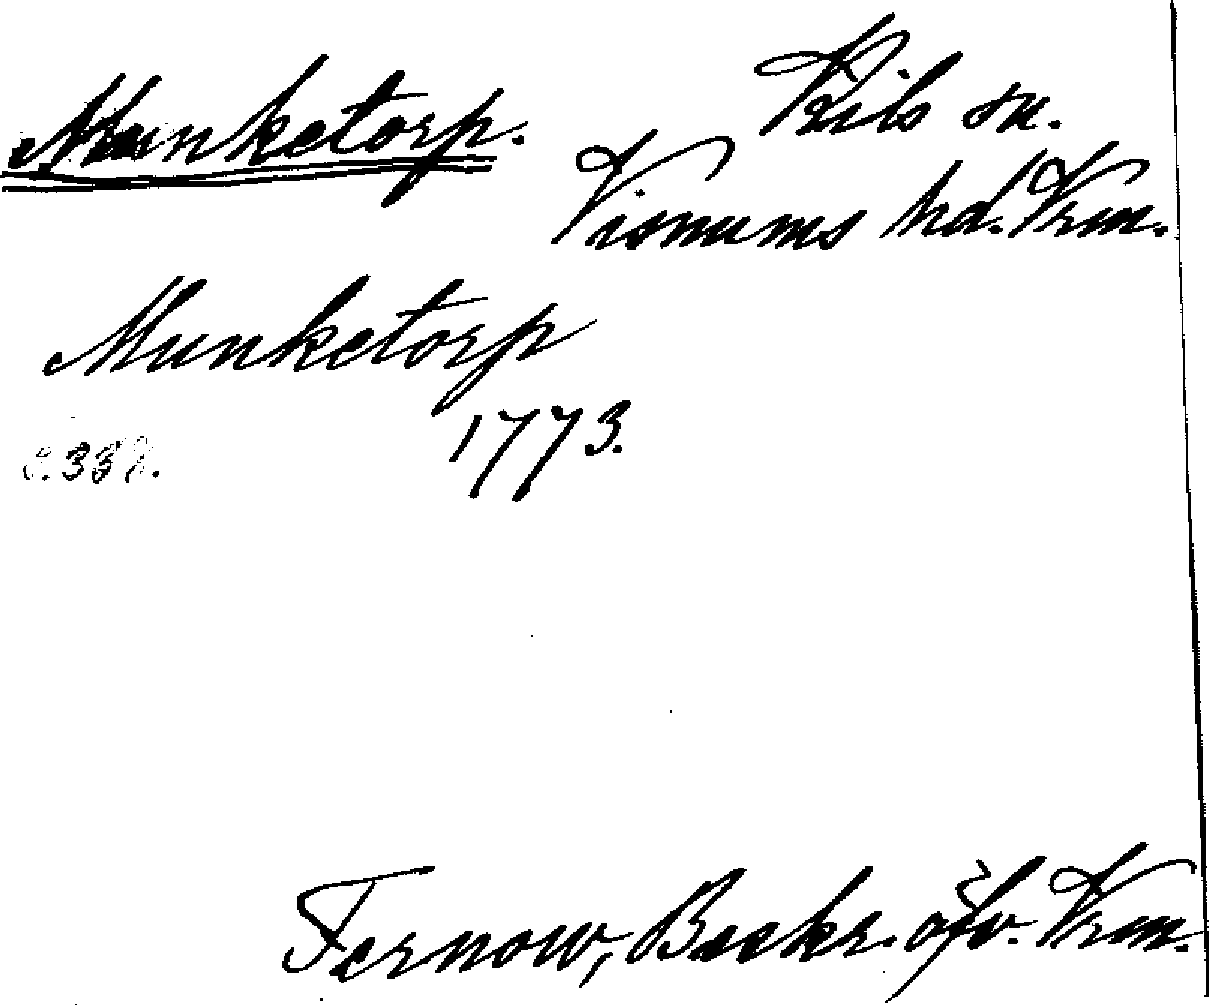 Munketorp.
Kils sn.
Visnums hd. Vrm.
Munketorp
1773.
s. 337.
Fernow, Beskr. öfv. Vrm.